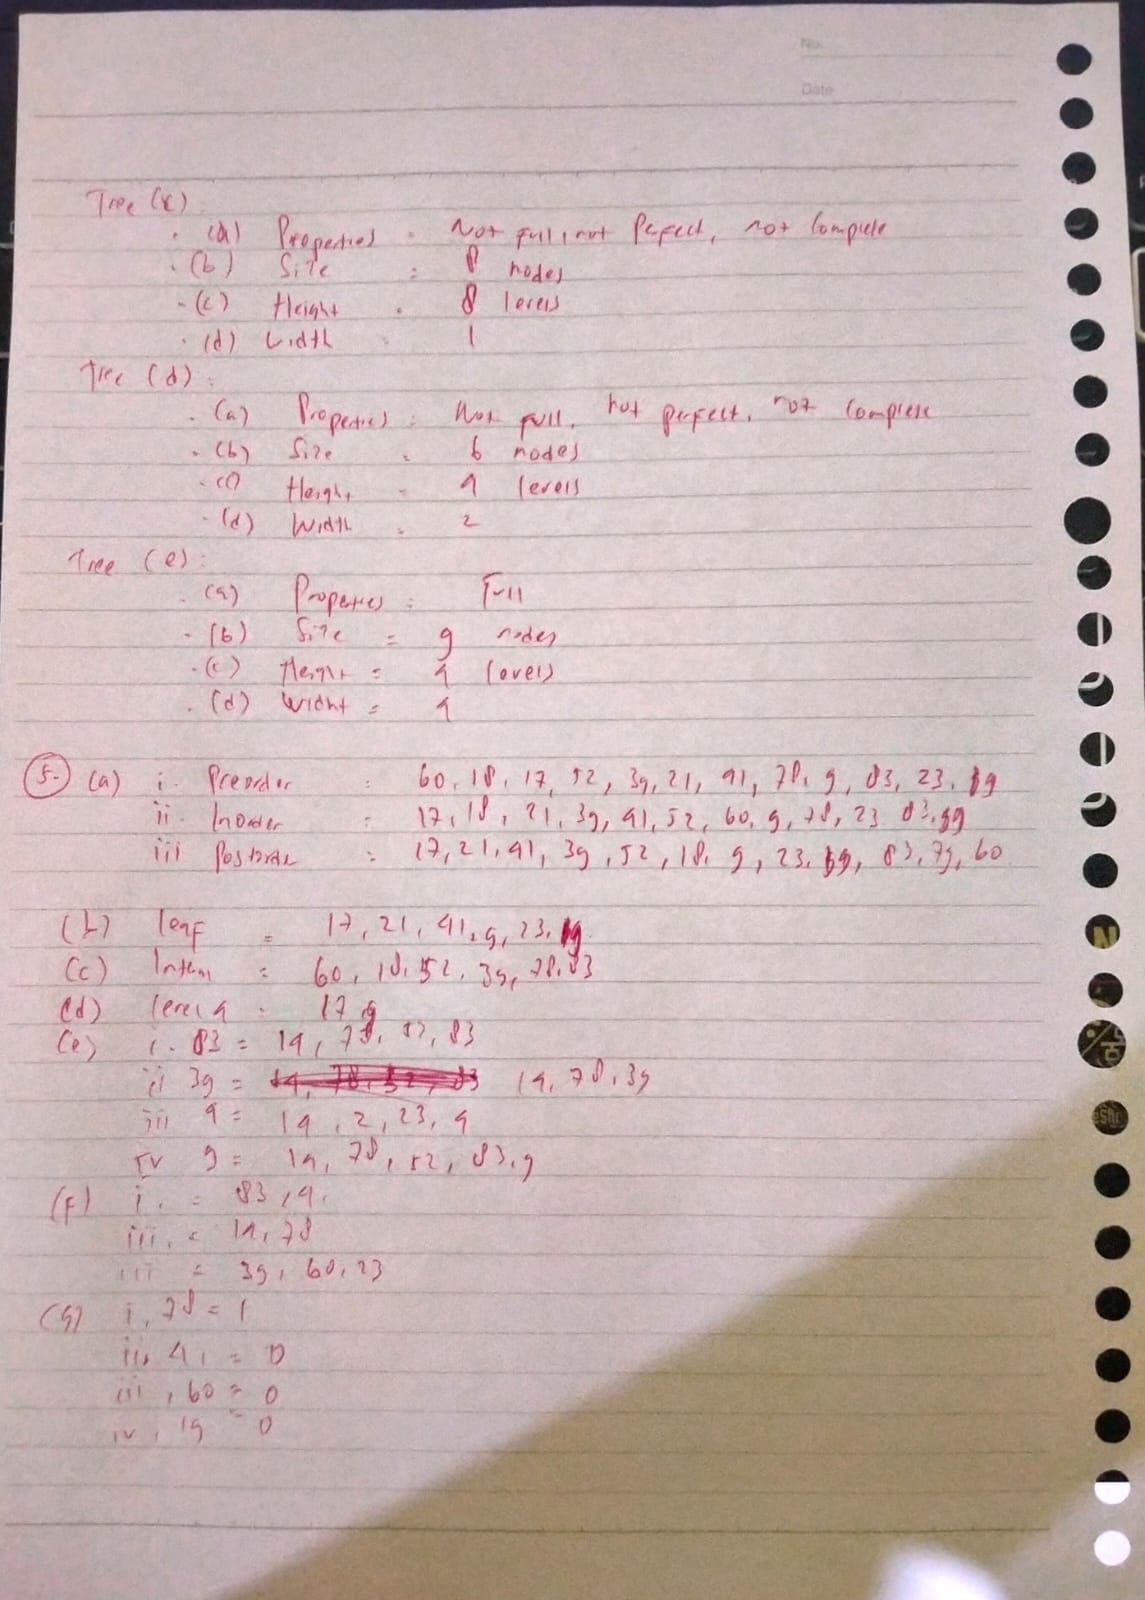 No.
Date
Tree (c) :
(a) Properties : Not full, not Perfect, not Complete
(b) Size : 8 nodes
(c) Height : 8 levels
(d) Width : 1
Tree (d) :
(a) Properties : Not full, not perfect, not complete
(b) Size : 6 nodes
(c) Height = 4 levels
(d) Width : 2
Tree (e) :
(a) Properties : Full
(b) Size = 9 nodes
(c) Height = 4 levels
(d) Width = 4
5. (a) i. Preorder : 60, 18, 17, 52, 39, 21, 41, 78, 9, 83, 23,
ii. Inorder : 17, 18, 21, 39, 41, 52, 60, 9, 78, 23 83,
iii Postorde : 17, 21, 41, 39, 52, 18, 9, 23, 83, 79, 60
(b) leaf = 17, 21, 41, 9, 23,
(c) Intern = 60, 18, 52, 39, 78, 83
(d) level 4 : 17
(e) i. 83 = 14, 78, 52, 83
ii 39 = 14, 78, 39
iii 4 = 14, 2, 23, 4
iv 9 = 14, 78, 52, 83, 9
(f) i. = 83, 4,
iii. = 14, 78
iii = 39, 60, 23
(g) i, 78 = 1
ii, 41 = 0
iii, 60 = 0
iv, 19 = 0